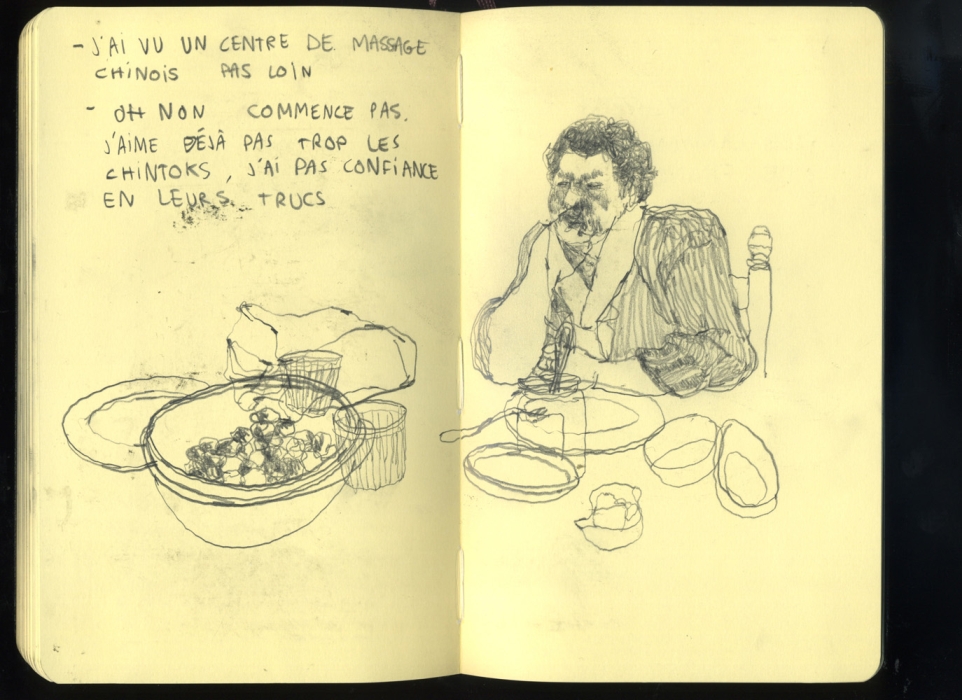 - J'AI VU UN CENTRE DE MASSAGE
CHINOIS PAS LOIN
- OH NON COMMENCE PAS.
J'AIME DÉJÀ PAS TROP LES
CHINTOKS, J'AI PAS CONFIANCE
EN LEURS TRUCS